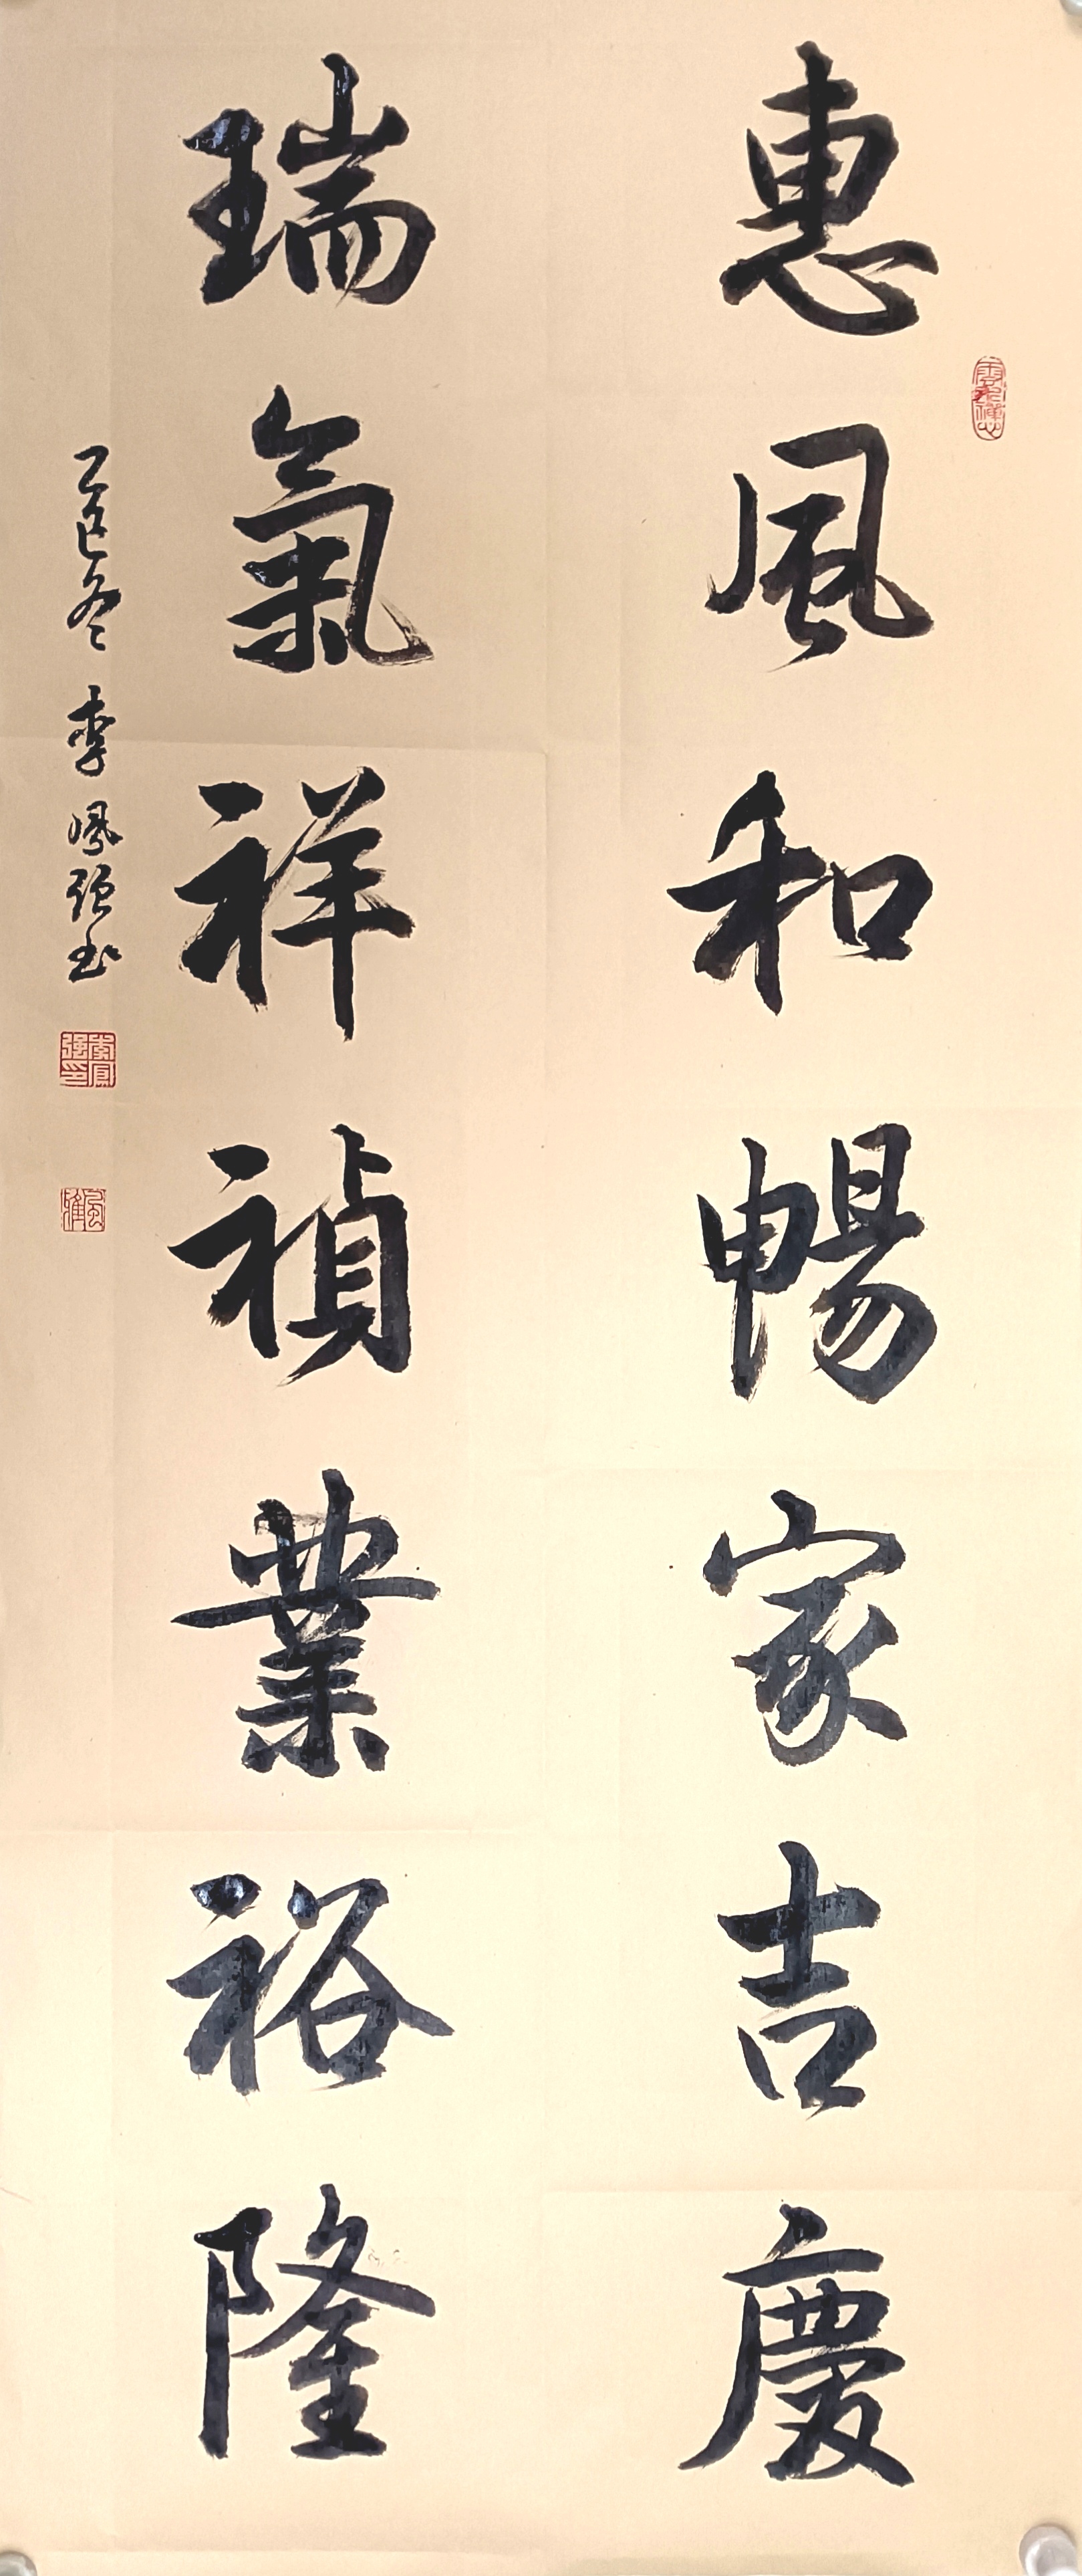 惠風和暢家吉慶
瑞氣祥禎業裕隆
乙巳冬 李鳳强书
李鳳强印